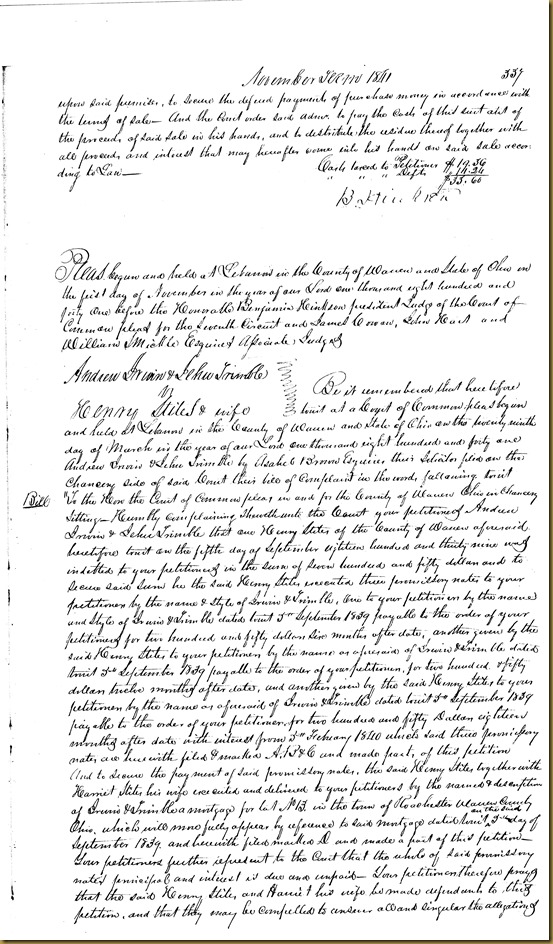 November Term 1841 337
upon said premises, to secure the defered payments of purchase money in accordance with
the terms of sale— And the Court order said admr. to pay the costs of this suit out of
the proceeds of said sale in his hands, and to distribute the residue thereof together with
all proceeds and interest that may hereafter come into his hands on said sale accor-
ding to Law—
Costs taxed to Petitioners $19.36
" " " Defts 14.24
$33.60
B Hinkson
Pleas begun and held at Lebanon in the County of Warren and State of Ohio on
the first day of November in the year of our Lord one thousand eight hundred and
forty one before the Honorable Benjamin Hinkson president Judge of the Court of
Common pleas for the Seventh Circuit and James Cowan, John Hart and
William Mickle Esquires Associate Judges
Andrew Irwin & Jehu Trimble
vs
Henry Stiles & wife
Be it remembered that heretofore
towit at a Court of Common pleas begun
and held at Lebanon in the County of Warren and State of Ohio on the twenty ninth
day of March in the year of our Lord one thousand eight hundred and forty one
Andrew Irwin & Jehu Trimble by Asahel Brown Esquire, their Solicitor filed on the
Chancery side of said Court their bill of Complaint in the words following towit
Bill "To the Hon the Court of Common pleas in and for the County of Warren Ohio in Chancery
Sitting— Humbly Complaining Sheweth unto the Court your petitioners Andrew
Irwin & Jehu Trimble that one Henry Stiles of the County of Warren aforesaid
heretofore towit on the fifth day of September eighteen hundred and thirty nine was
indebted to your petitioners in the sum of seven hundred and fifty dollars and to
secure said sum he the said Henry Stiles executed three promissory notes to your
petitioners by the name & Style of Irwin & Trimble, One to your petitioners by the name
and Style of Irwin & Trimble dated towit 5th September 1839 payable to the order of your
petitioners for two hundred and fifty dollars six months after date, another given by the
said Henry Stiles to your petitioners by the name as aforesaid of Irwin & Trimble dated
towit 5th September 1839 payable to the order of your petitioners, for two hundred & fifty
dollars twelve months after date, and another given by the said Henry Stiles to your
petitioners by the name as aforesaid of Irwin & Trimble dated towit 5th September 1839
payable to the order of your petitioners, for two hundred and fifty Dollars eighteen
months after date with interest from 5th February 1840 which said three promissory
notes are herewith filed & marked A, B & C and made part, of this petition
And to secure the payment of said promissory notes, the said Henry Stiles together with
Harriet Stiles his wife executed and delivered to your petitioners by the name & description
of Irwin & Trimble a mortgage for lot No 13. in the town of Rochester Warren County
Ohio, which will more fully appear by reference to said mortgage dated towit 5th day of
September 1839. and herewith filed marked D and made a part of this petition—
Your petitioners further represent to the Court that the whole of said promissory
notes principal and interest is due and unpaid— Your petitioners therefore prays
that the said Henry Stiles and Harriet his wife be made defendants to this
petition, and that they may be compelled to answer all and singular the allegations